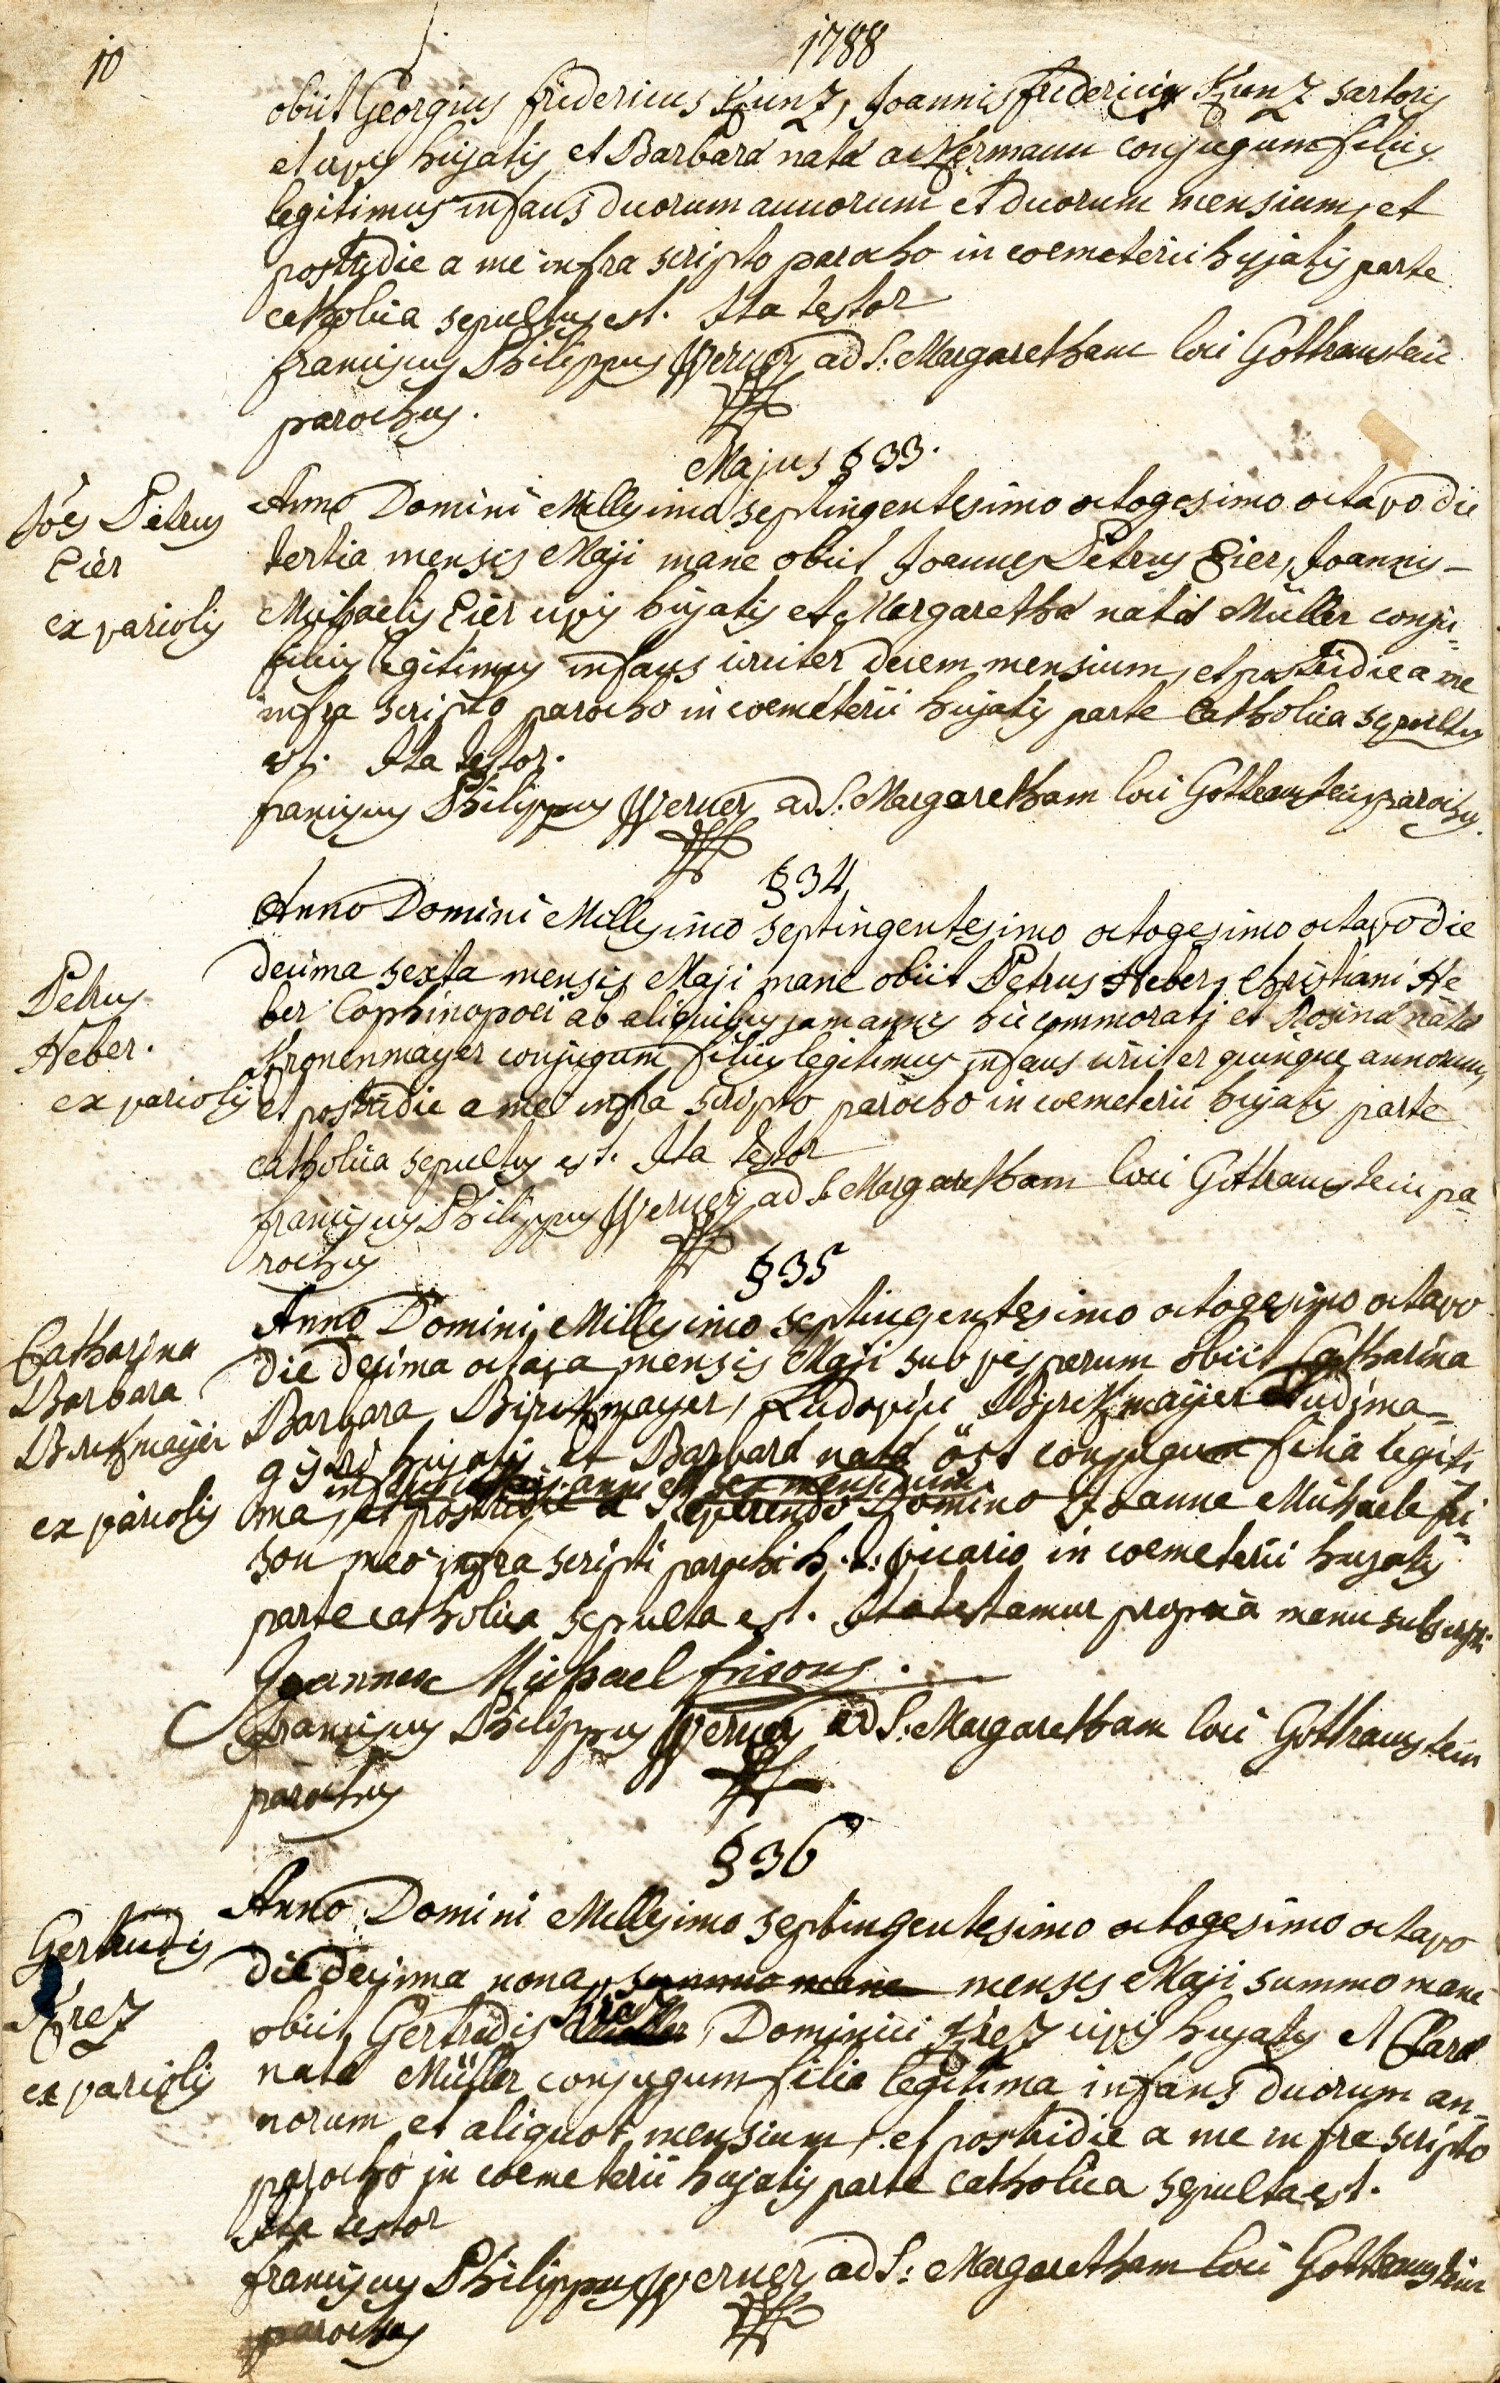 10
1788
obiit Georgius fridericus Kunz, Joannis friderici Kunz sartoris
et civis hujatis et Barbarâ natâ ac Hermann conjugum filius
legitimus infans duorum annorum et duorum mensium, et
postridie a me infra scripto parocho in coemeterii hujatis parte
catholica sepultus est. Ita testor
franciscus Philippus Werner ad S: Margaretham loci Gottramstein
parochus.
Majus § 33.
Jóes Petrus
Eier
ex variolis
Anno Domini Millesimo septingentesimo octogesimo octavo die
tertia mensis Maji mane obiit Joannes Petrus Eier, Joannis
Michaelis Eier civis hujatis et Margarethâ natâ Müller conju-
filius legitimus infans circiter decem mensium, et postridie a me
infra scripto parocho in coemeterii hujatis parte Catholica sepultus
est. Ita testor.
franciscus Philippus Werner ad S: Margaretham loci Gottramstein parochus.
§ 34
Petrus
Heber.
ex variolis
Anno Domini Millesimo septingentesimo octogesimo octavo die
decima sexta mensis Maji mane obiit Petrus Heber, Christiani He
ber Cophinopoei ab aliquibus jam annis hic commoratis et Rosinâ natâ
Kronenmayer conjugum filius legitimus infans circiter quinque annorum,
et postridie a me infra scripto parocho in coemeterii hujatis parte
catholica sepultus est. Ita testor
franciscus Philippus Werner ad S. Margaretham loci Gottramstein pa
rochus
§ 35
Catharina
Barbara
Birckmayer
ex variolis
Anno Domini Millesimo septingentesimo octogesimo octavo
die decima octava mensis Maji sub vesperum obiit Catharina
Barbara Birckmayer, Ludovici Birckmayer Ludima-
gistri hujatis et Barbarâ natâ öst conjugum filia legiti
infans unius anni et sex mensium
ma, et postridie a Reverendo Domino Joanne Michaele fri-
son meo infra scripti parochi h. t. vicario in coemeterii hujatis
parte catholica sepulta est. Ita testamur propria manu subscripti
Joannes Michael frisons.
franciscus Philippus Werner ad S: Margaretham loci Gottramstein
parochus
§ 36
Gertrudis
Krez
ex variolis
Anno Domini Millesimo septingentesimo octogesimo octavo
die decima nona, summo mane mensis Maji summo mane
obiit Gertrudis Müller Krez, Dominici Krez civis hujatis et Clarâ
natâ Müller conjugum filia legitima infans duorum an-
norum et aliquot mensium, et postridie a me infra scripto
parocho in coemeterii hujatis parte catholica sepulta est.
Ita testor
franciscus Philippus Werner ad S: Margaretham loci Gottramstein
parochus